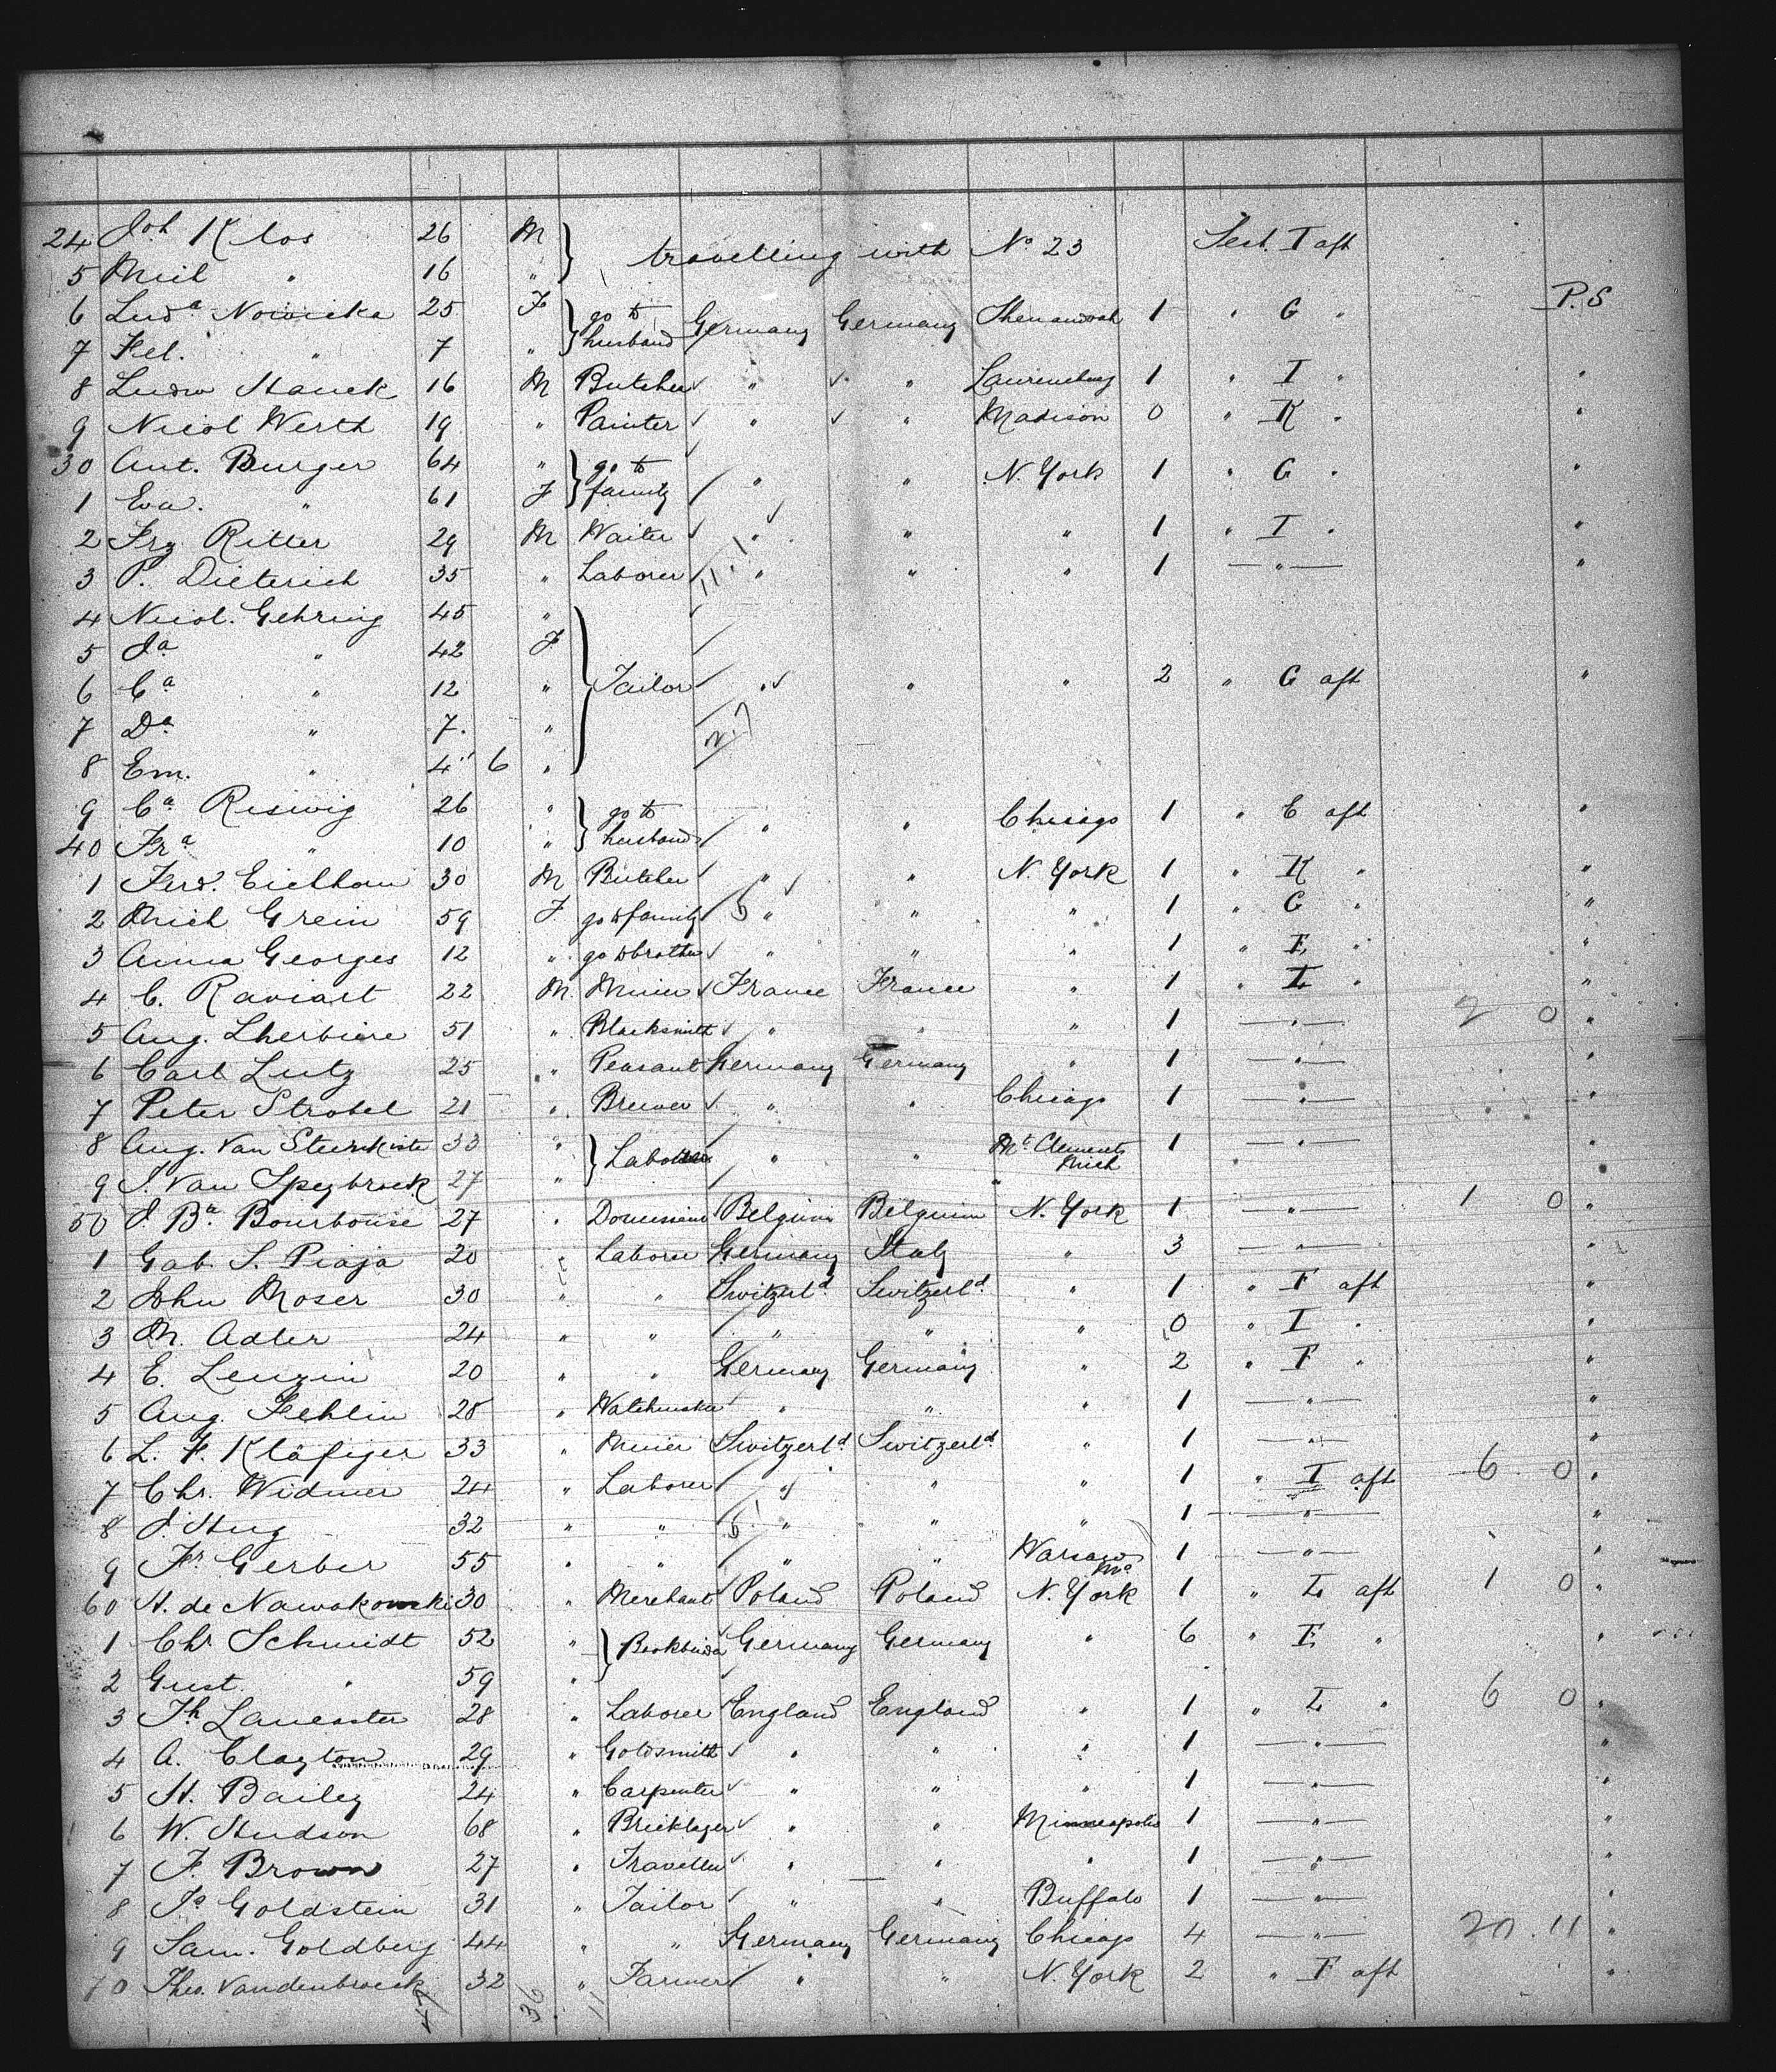 24 Joh Klos 26 M } travelling with No 23 Sect. I aft
5 Mich " 16 "
6 Luda Nowicka 25 F } go to husband Germany Germany Shenandoah 1 " G " P.S
7 Fel. " 7 "
8 Ludw Hanek 16 M Butcher " " 1 " I " "
9 Nicol Werth 19 " Painter " " Madison 0 " K " "
30 Ant. Burger 64 " } go to family " " N. York 1 " G " "
1 Eva. " 61 F
2 Frz Ritter 29 M Waiter " " " 1 " I " "
3 P. Dieterich 35 " Laborer 11.1 " " " 1 — " — "
4 Nicol. Gehring 45 "
5 Ja " 42 F
6 Ca " 12 " } Tailor " " " 2 " G aft "
7 Da " 7. "
8 Em. " 4 6 "
9 Ca Reswig 26 " } go to husband " " Chicago 1 " E aft "
40 Fra " 10 "
1 Ferd. Eichhorn 30 M Butcher " " N. York 1 " K " "
2 Mich Grein 59 F go to family " " " 1 " G " "
3 Anna Georges 12 " go to brother " " " 1 " E " "
4 C. Raviart 22 M. Miner France France " 1 " I " "
5 Aug. Lherbiere 51 " Blacksmith " " " 1 — " — 2 0 "
6 Carl Lutz 25 " Peasant Germany Germany " 1 — " — "
7 Peter Strobel 21 " Brewer " " Chicago 1 — " — "
8 Aug. Van 33 " } " " Mt Clements Mich 1 — " — "
9 J. Van Speybroek 27 " "
50 J. Bte Bourbouse 27 " Belgium Belgium N. York 1 — " — 1 0 "
1 Gab. S. Piaja 20 " Laborer Germany Italy " 3 — " — "
2 John Moser 30 " " Switzerld Switzerld. " 1 " F aft "
3 M. Adler 24 " " " " " 0 " I " "
4 E. Lenzin 20 " " Germany Germany " 2 " F " "
5 Aug. Fehlin 28 " Watchmaker " " " 1 — " — "
6 L. F. Kläfiger 33 " Miner Switzerld. Switzerld. " 1 — " — "
7 Chr. Widmer 24 " Laborer " " " 1 " I aft 6 0 "
8 J. Hug 32 " " " " " 1 — " — "
9 Fr Gerber 55 " " " " Warsaw Mo 1 — " — "
60 H. de Nawakowski 30 " Merchant Poland Poland N. York 1 " I aft 1 0 "
1 Chr Schmidt 52 " } Bookbinder Germany Germany " 6 " E " "
2 Gust. " 59 "
3 Th Lancaster 28 " Laborer England England " 1 " I " 6 0 "
4 A. Clayton 29 " Goldsmith " " " 1 — " — "
5 H. Bailey 24 " Carpenter " " " 1 — " — "
6 W. Hudson 68 " Bricklayer " " Minneapolis 1 — " — "
7 F. Brown 27 " Traveller " " " 1 — " — "
8 Js Goldstein 31 " Tailor " " Buffalo 1 — " — "
9 Sam. Goldberg 44 " " Germany Germany Chicago 4 — " — 20.11 "
70 Theo. Vandenbroeck 32 " Farmer " " N. York 2 " F aft "
47 36 11